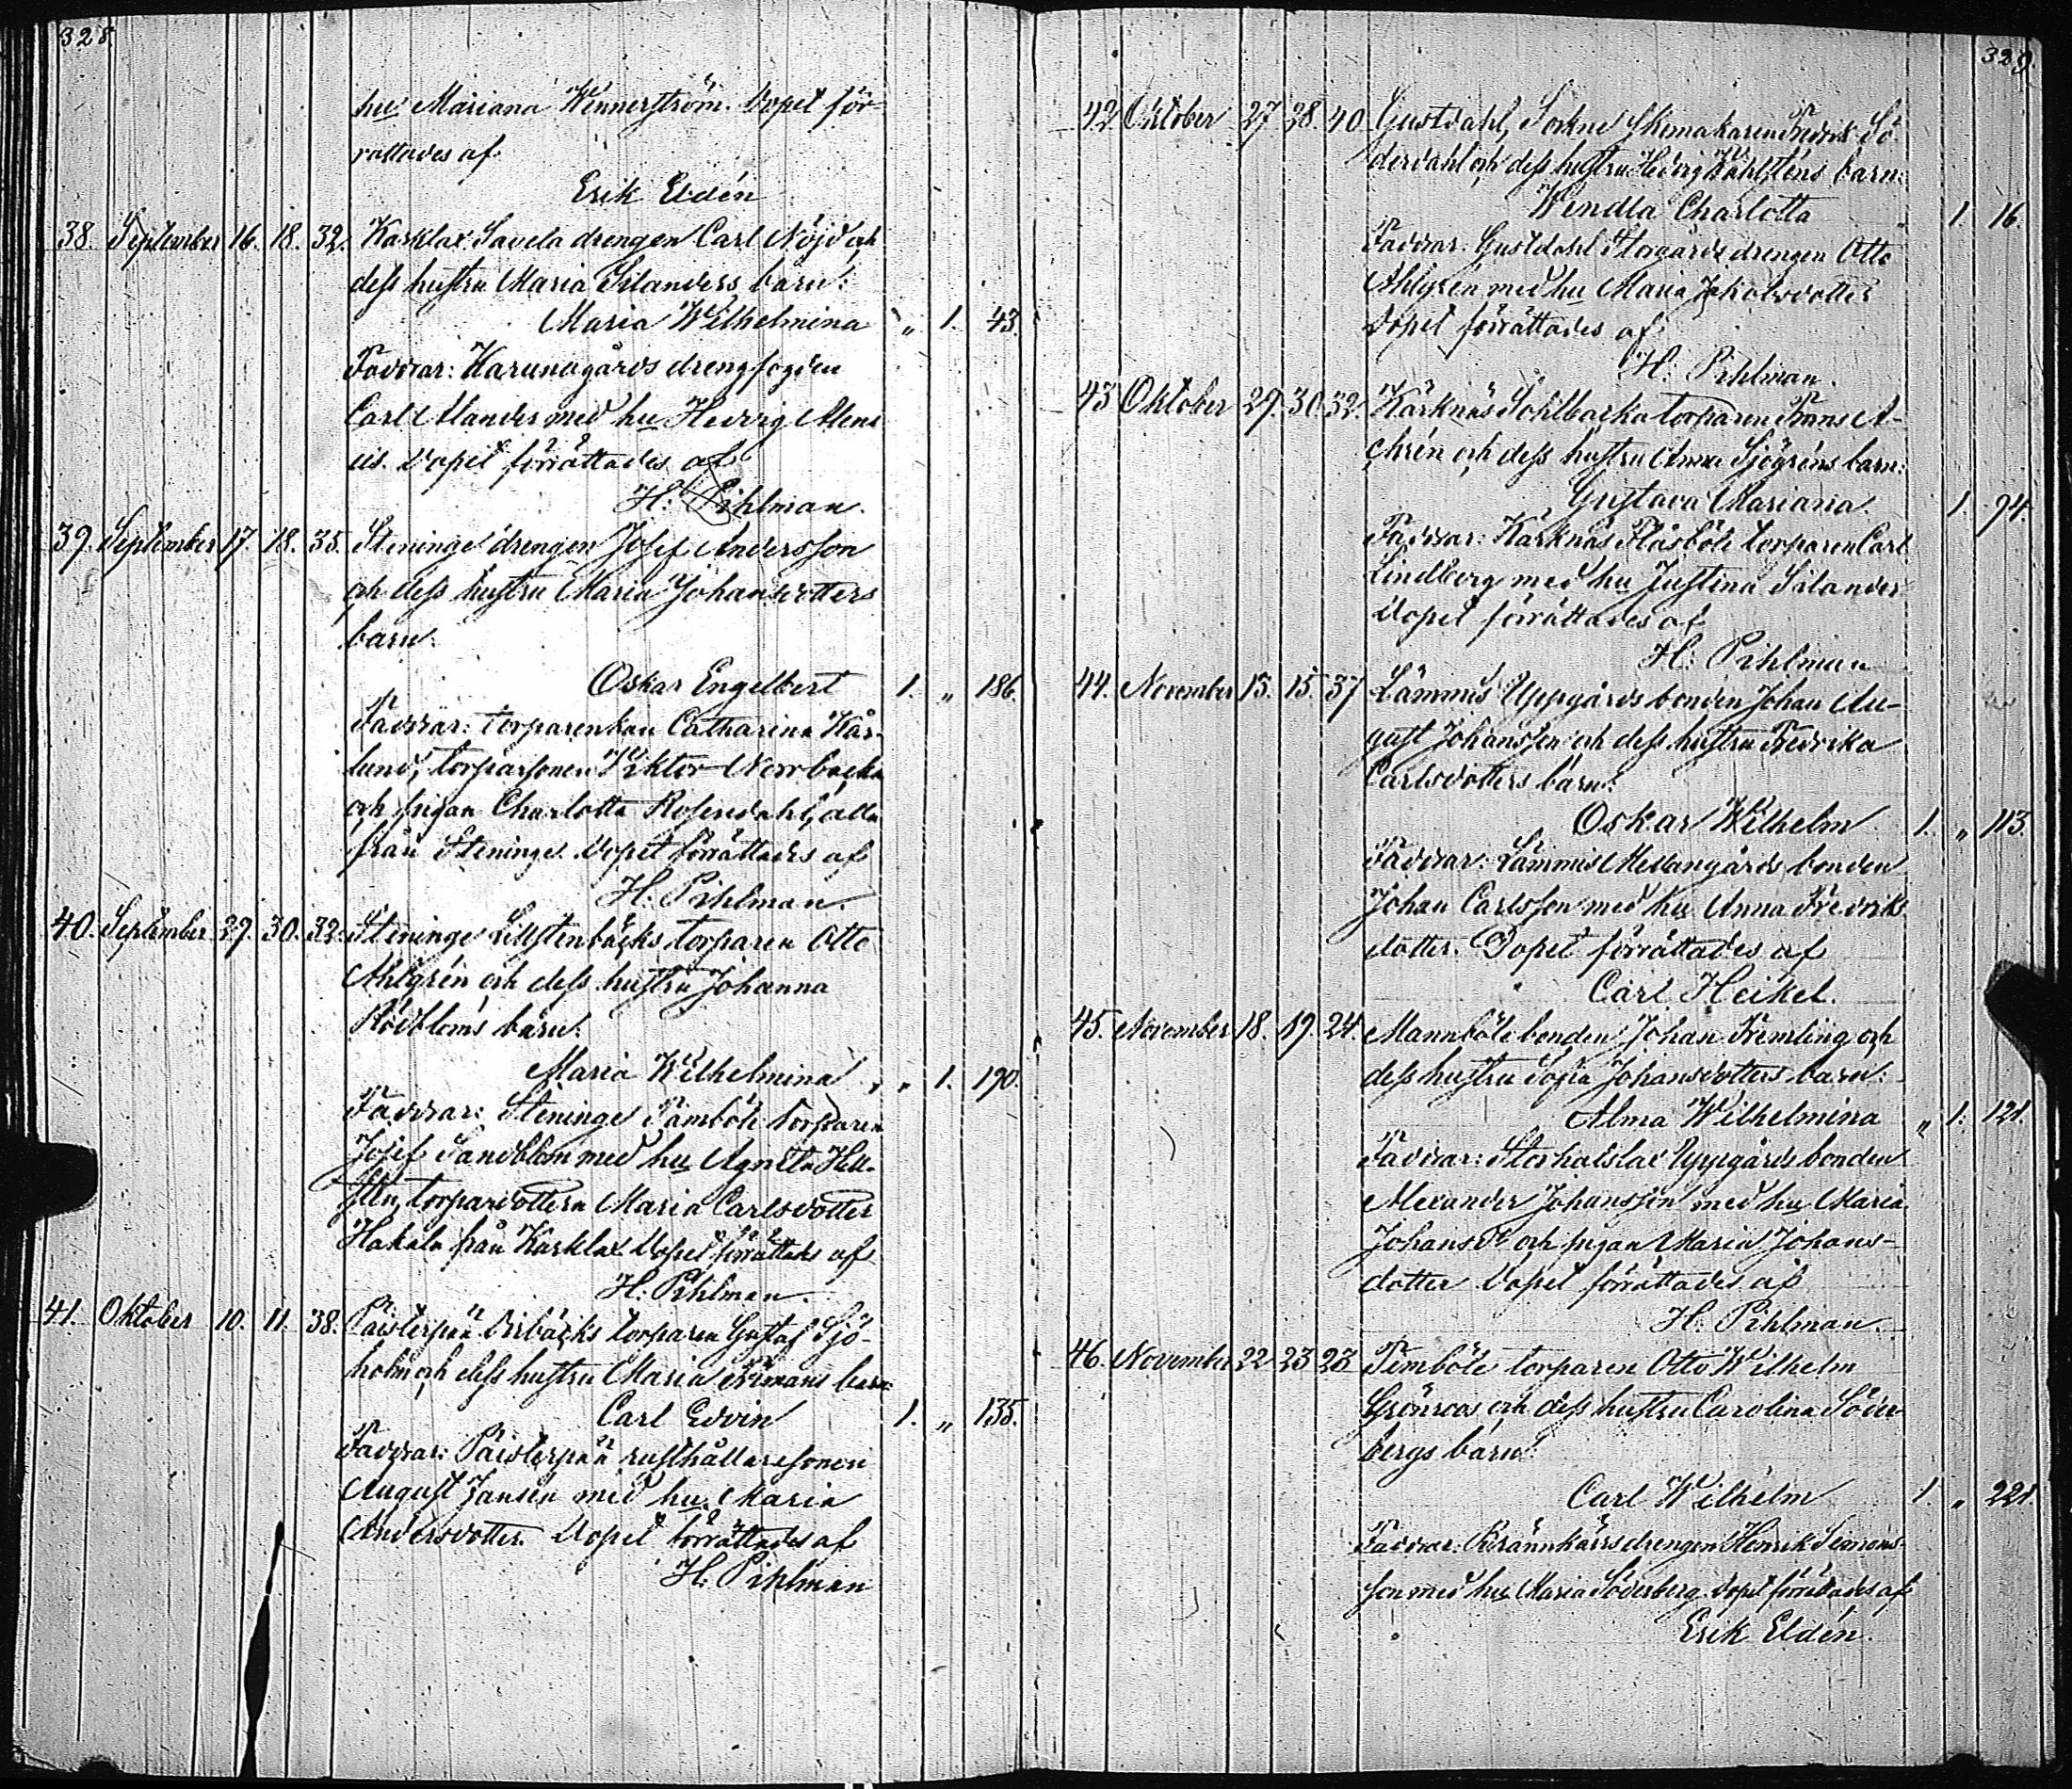 328.
hu Mariana Wennerström. Dopet för-
rättades af
Erik Eldén
38. September 16. 18. 32. Karklax Savela drengen Carl Nöjd och
dess hustru Maria Silanders barn:
Maria Wilhelmina „ 1. 43.
Faddrar: Karunagårds drengfogden
Carl Alander med hu Hedvig Alene
us. Dopet förrättades af
H. Pihlman.
39. September 17. 18. 35. Steninge drengen Josef Andersson
och dess hustru Maria Johansdotters
barn:
Oskar Engelbert 1. „ 186.
Faddrar: torparenkan Catharina Kår-
lund, torparsonen Viktor Norrbacka
och pigan Charlotta Rosendahl, alla
från Steninge. Dopet förrättades af
H. Pihlman.
40. September 29. 30. 32. Steninge Lillstenbäcks torparen Otto
Ahlgrén och dess hustru Johanna
Rödbloms barn:
Maria Wilhelmina „ 1. 190.
Faddrar: Steninge Tämböle torparen
Josef Sandblom med hu Agneta Hell-
stén, torpardottern Maria Carlsdotter
Hakala från Karklax. Dopet förrättades af
H. Pihlman.
41. Oktober 10. 11. 38. Päisterpää torparen Gustaf Sjö-
holm och dess hustru Maria barn:
Carl Edvin 1. „ 135.
Faddrar: Päisterpää rusthållaresonen
August Jansen med hu Maria
Andersdotter. Dopet förrättades af
H. Pihlman
329.
42. Oktober 27 28 40 Gustdahl, Sockne skomakaren Fredrik Sö-
derdahl och dess hustru Hedvig Wahlsténs barn:
Wendla Charlotta „ 1. 16.
Faddrar: Gustdahl Storgårds drengen Otto
Ahlgrén med hu Maria Jakobsdotter
Dopet förrättades af
H. Pihlman.
43 Oktober 29. 30. 32. Kärknäs Sohlbacka torparen Frans A-
chrén och dess hustru Anna Sjögréns barn:
Gustava Mariana. 1. 94.
Faddrar: Kärknäs Flåsböle torparen Carl
Lindberg med hu Justina Salander
Dopet förrättades af
H. Pihlman
44. November 13. 15. 37 Lämmis Uppgårds bonden Johan Au-
gust Johansson och dess hustru Fredrika
Carlsdotters barn:
Oskar Wilhelm 1. „ 113.
Faddrar: Lämmis Mellangårds bonden
Johan Carlsson med hu Anna Fredriks
dotter. Dopet förrättades af
Carl Heikel.
45. November 18. 19. 24. Mannböle bonden Johan Fremling och
dess hustru Sofia Johansdotters barn:
Alma Wilhelmina „ 1. 121.
Faddrar: Storhalslax Uppgårds bonden
Alexander Johansson med hu Maria
Johansdr och pigan Maria Johans-
dotter Dopet förrättades af
H. Pihlman.
46. November 22 23 23 Temböle torparen Otto Wilhelm
Grönroos och dess hustru Carolina Söder
bergs barn:
Carl Wilhelm 1. „ 221.
Faddrar: Brännkärrs drengen Henrik Simons-
son med hu Maria Söderberg. Dopet förrättades af
Erik Eldén.